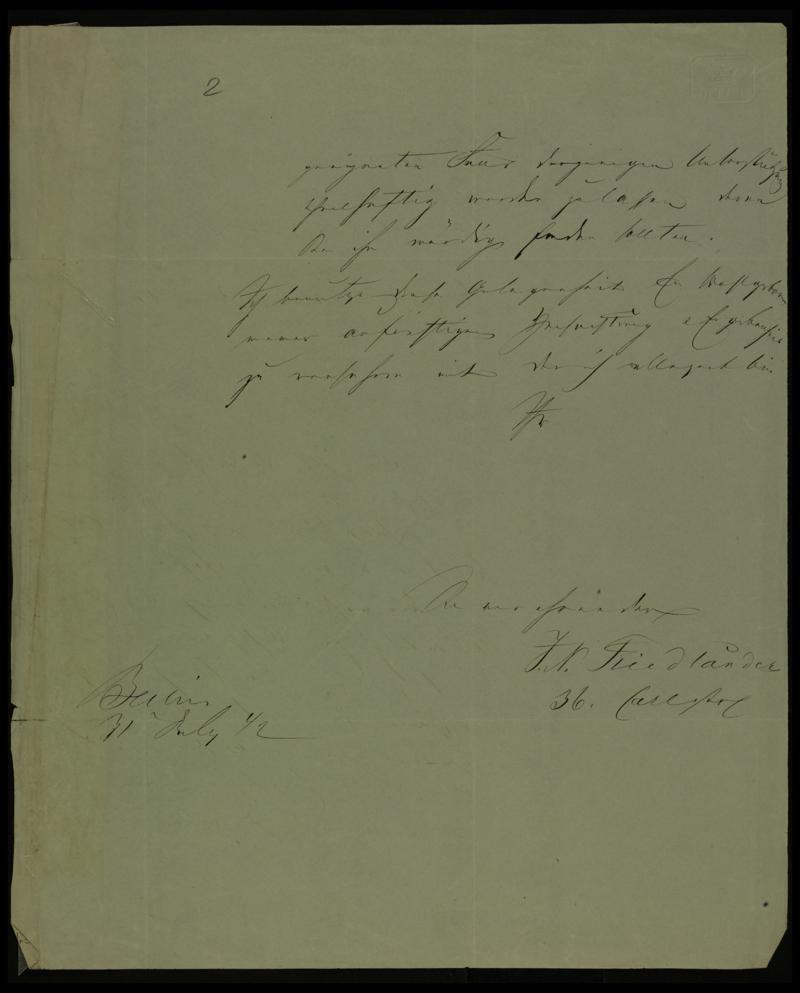 2
geeigneten Falls derjenigen Unterstützung
theilhaftig werden zu lassen deren
Sie ihn würdig finden sollten.
Ich benutze diese Gelegenheit Ew Wohlgeboren
meiner aufrichtigen Hochachtung & Ergebenheit
zu versichern mit der ich allezeit bin
Ihr
Sie verehrender
J. N. Friedländer
36. Carlstr
Berlin
31 July 42